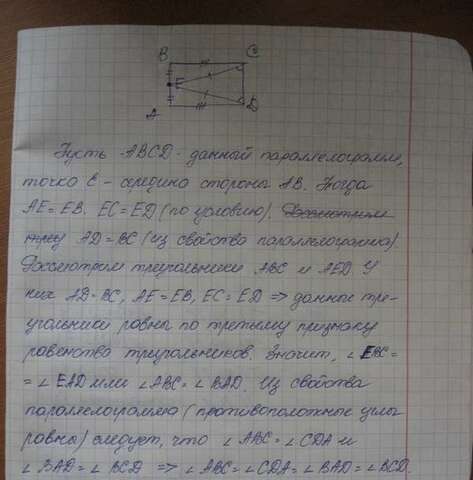 B C
E
A D
Пусть ABCD - данный параллелограмм,
точка E - середина стороны AB. Тогда
AE = EB. EC = ED (по условию). Рассмотрим
треу AD = BC (из свойства параллелограмма)
Рассмотрим треугольники ABC и AED. У
них AD = BC, AE = EB, EC = ED => данные тре-
угольники равны по третьему признаку
равенства треугольников. Значит, ∠ EBC =
= ∠ EAD или ∠ ABC = ∠ BAD. Из свойства
параллелограмма (противоположные углы
равны) следует, что ∠ ABC = ∠ CDA и
∠ BAD = ∠ BCD => ∠ ABC = ∠ CDA = ∠ BAD = ∠ BCD.